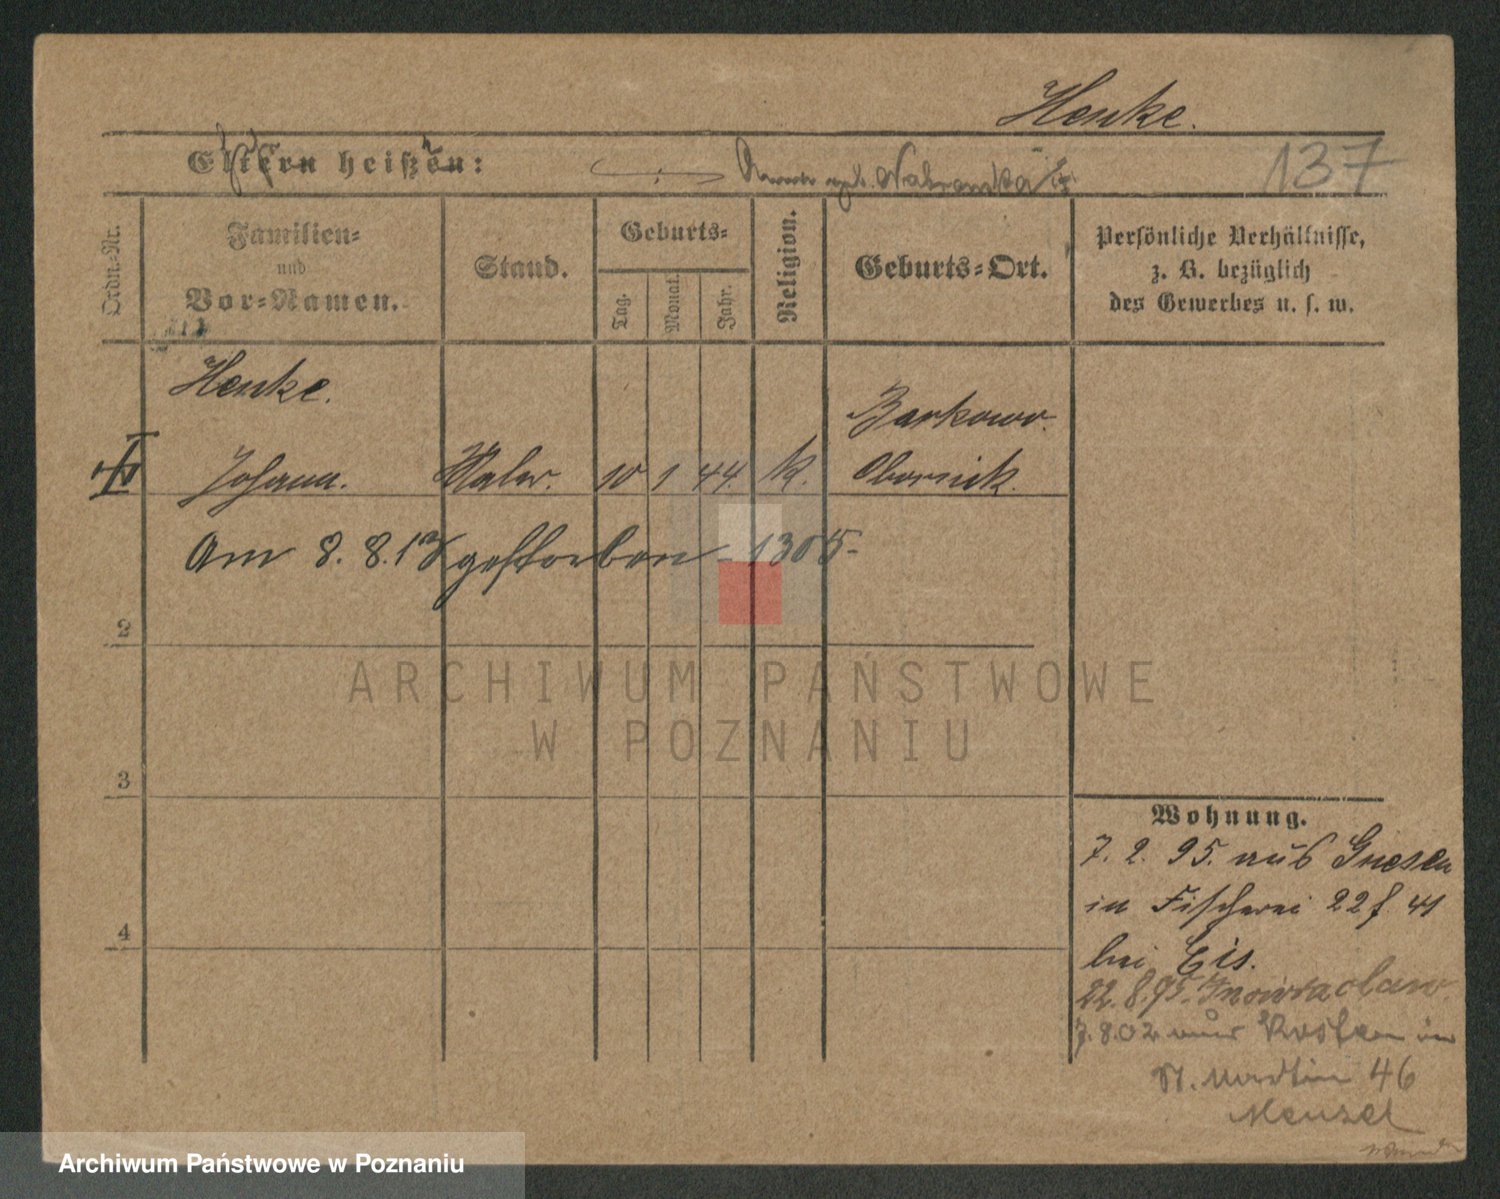 Henke.
Eltern heißen:
geb.
137
Ordn.-Nr.
Familien-
und
Vor-Namen.
Stand.
Geburts-
Tag.
Monat.
Jahr.
Religion.
Geburts-Ort.
Persönliche Verhältnisse,
z. B. bezüglich
des Gewerbes u. s. w.
Henke.
Johann.
Maler.
10
1
44.
k.
Barkowo.
Obornick.
Am 8. 8. 13 gestorben - 1305-
2
3
4
Wohnung.
7. 2. 95. aus Gnesen
in Fischerei 22 f. 41
bei Eis.
22. 8. 95. Inowraclaw.
7. 8. 02 aus Kosten in
St. Martin 46
Menzel
ARCHIWUM PAŃSTWOWE
W POZNANIU
Archiwum Państwowe w Poznaniu